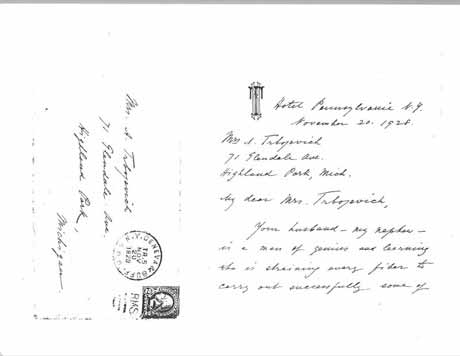 Mrs. N. Trbojevich
71 Glendale Ave.
Highland Park,
Michigan.
N.Y. GENEVA & BUFF.
TR.5
NOV
20
1928
R.P.O.
RMS
Hotel Pennsylvania N.Y.
November 20. 1928.
Mrs N. Trbojevich
71 Glendale Ave.
Highland Park, Mich.
My dear Mrs. Trbojevich,
Your husband – my nephew –
is a man of genius and learning
who is straining every fiber to
carry out successfully some of